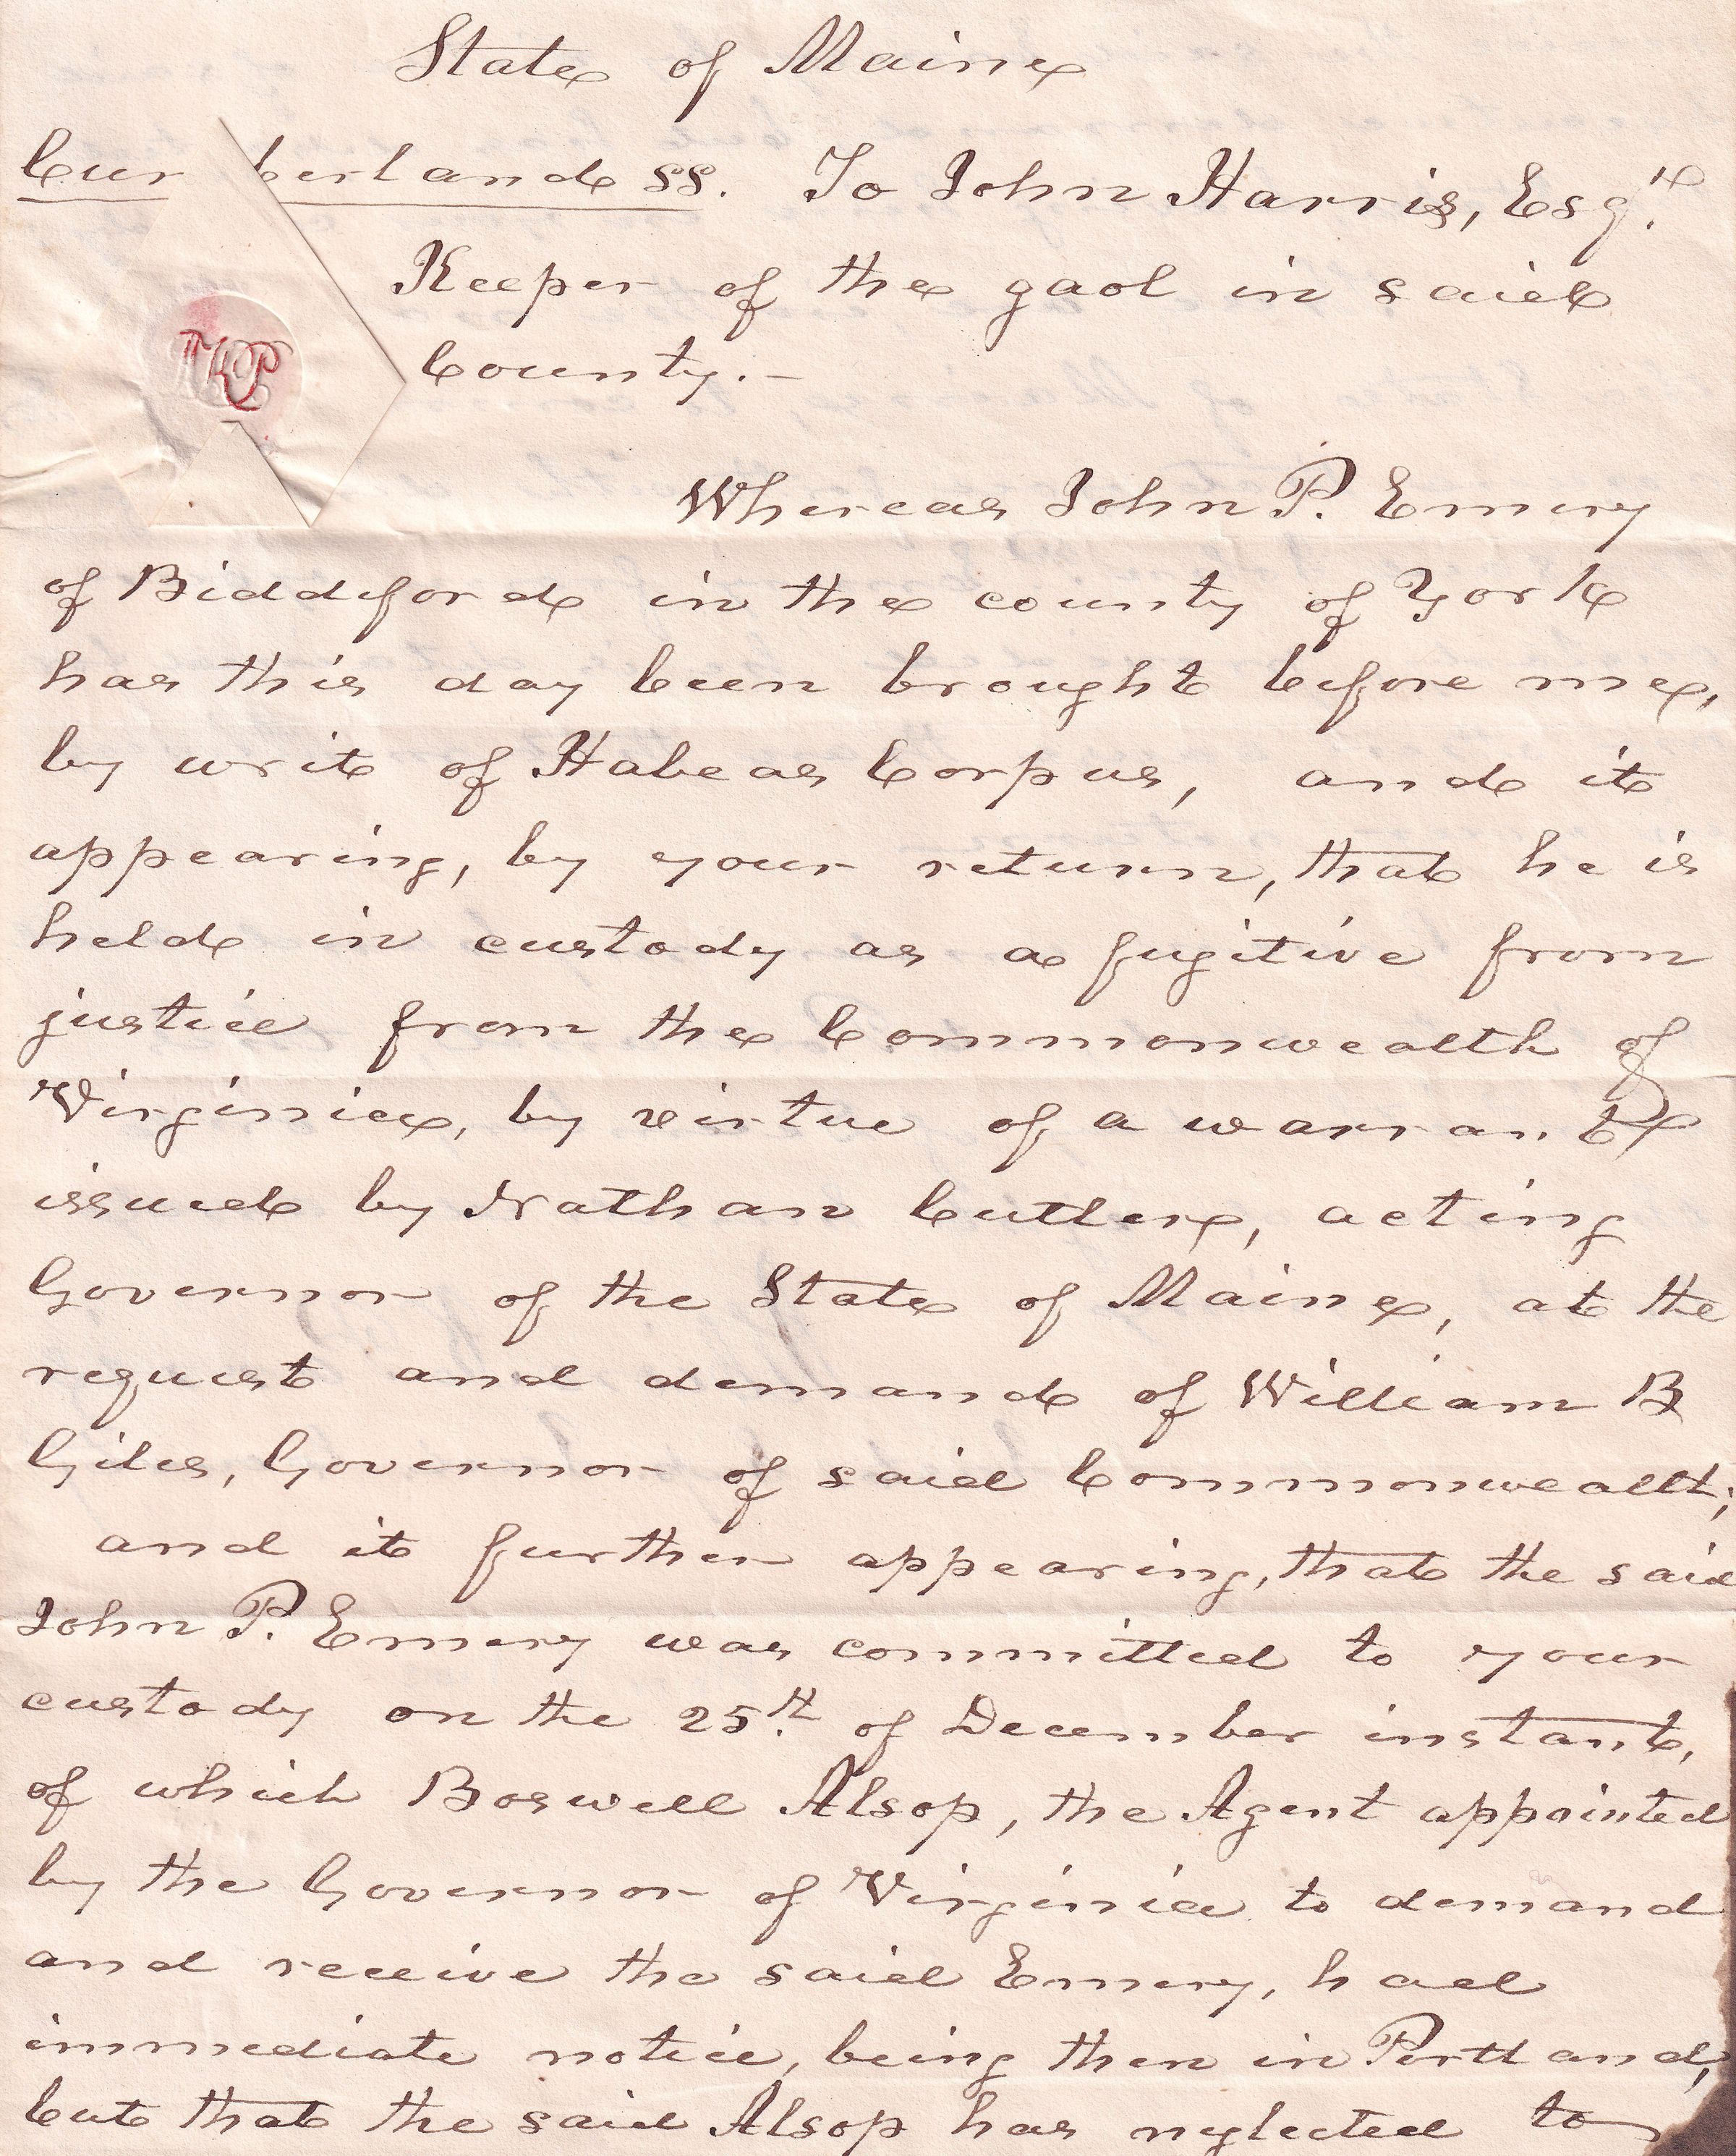 State of Maine
Cumberland ss. To John Harris, Esqr.
Keeper of the gaol in said
County.—
Whereas John P. Emery
of Biddeford in the county of York
has this day been brought before me,
by writ of Habeas Corpus, and it
appearing, by your return, that he is
held in custody as a fugitive from
justice from the Commonwealth of
Virginia, by virtue of a warrant
issued by Nathan Cutler, acting
Governor of the State of Maine, at the
request and demand of William B
Giles, Governor of said Commonwealth;
and it further appearing, that the said
John P. Emery was committed to your
custody on the 25th. of December instant,
of which Boswell Alsop, the Agent appointed
by the Governor of Virginia to demand
and receive the said Emery, had
immediate notice, being then in Portland,
but that the said Alsop has neglected to